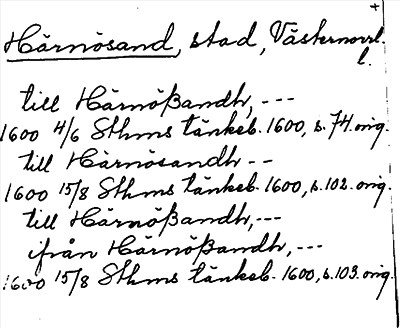 Härnösand, stad, Västernorrl. l.
till Härnößandh, ---
1600 4/6 Sthms tänkeb. 1600, s. 74. orig.
till Härnösandh --
1600 15/8 Sthms tänkeb. 1600, s. 102. orig.
till Härnößandh, ---
ifrån Härnößandh, ---
1600 15/8 Sthms tänkeb. 1600, s. 103. orig.